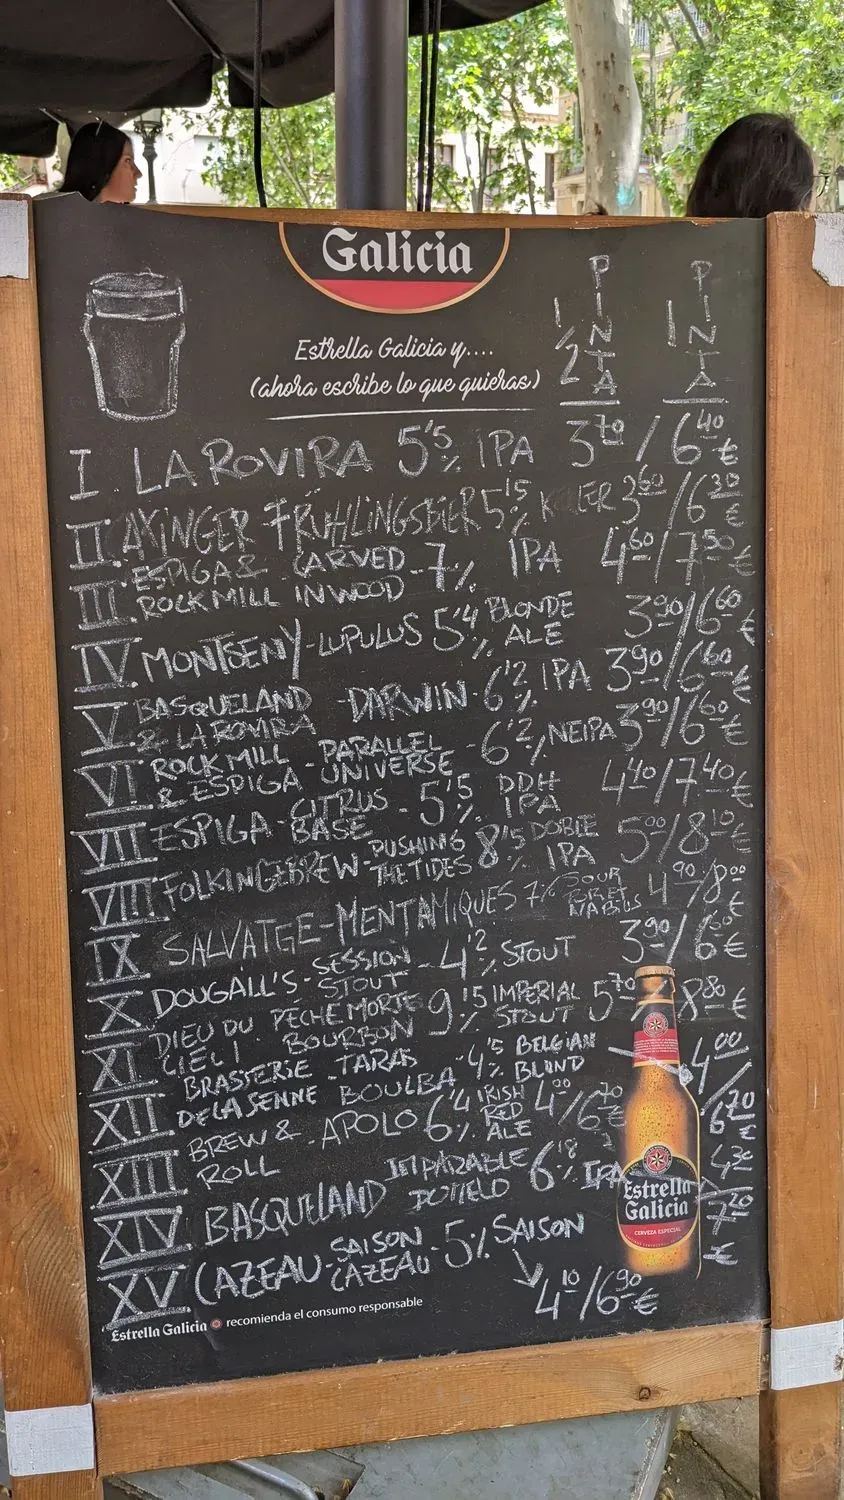 Galicia
Estrella Galicia y....
(ahora escribe lo que quieras)
1/2 PINTA
1 PINTA
I. LA ROVIRA 5'5% IPA 3'70 / 6'40€
II. AYINGER FRÜHLINGSBIER 5'15% 3'60 / 6'30€
III. ESPIGA & CARVED - 7% IPA 4'60 / 7'50€
ROCKMILL IN WOOD
IV MONTSENY - LUPULUS 5'4% BLONDE 3'90 / 6'60€
ALE
V. BASQUELAND - DARWIN - 6'2% IPA 3'90 / 6'60€
& LA ROVIRA
VI ROCKMILL - PARALLEL - 6'2% NEIPA 3'90 / 6'60€
& ESPIGA - UNIVERSE
VII ESPIGA - CITRUS - 5'5% DDH 4'40 / 7'40€
BASE IPA
VIII FOLKINGEBREW - PUSHING 8'5% DOBLE 5'00 / 8'10€
THE TIDES IPA
IX SALVATGE - MENTAMIQUES 7% SOUR 4'90 / 8'00€
BRET
X DOUGALL'S - SESSION - 4'2% STOUT 3'90 / 6'60€
STOUT
XI DIEU DU PÉCHÉ MORTEL 9'5% IMPERIAL 5'70 / 8'80€
CIEL! BOURBON STOUT
XII BRASSERIE - TARAS - 4'5% BELGIAN 4'00 / 6'70€
DE LA SENNE BOULBA BLOND
XIII BREW & - APOLO 6'4% IRISH 4'00 / 6'70
ROLL RED
ALE
XIV BASQUELAND IMPARABLE 6'8% IPA 4'30 / 7'20€
POMELO
XV CAZEAU - SAISON - 5% SAISON
CAZEAU
4'10 / 6'90€
Estrella
Galicia
CERVEZA ESPECIAL
Estrella Galicia recomienda el consumo responsable